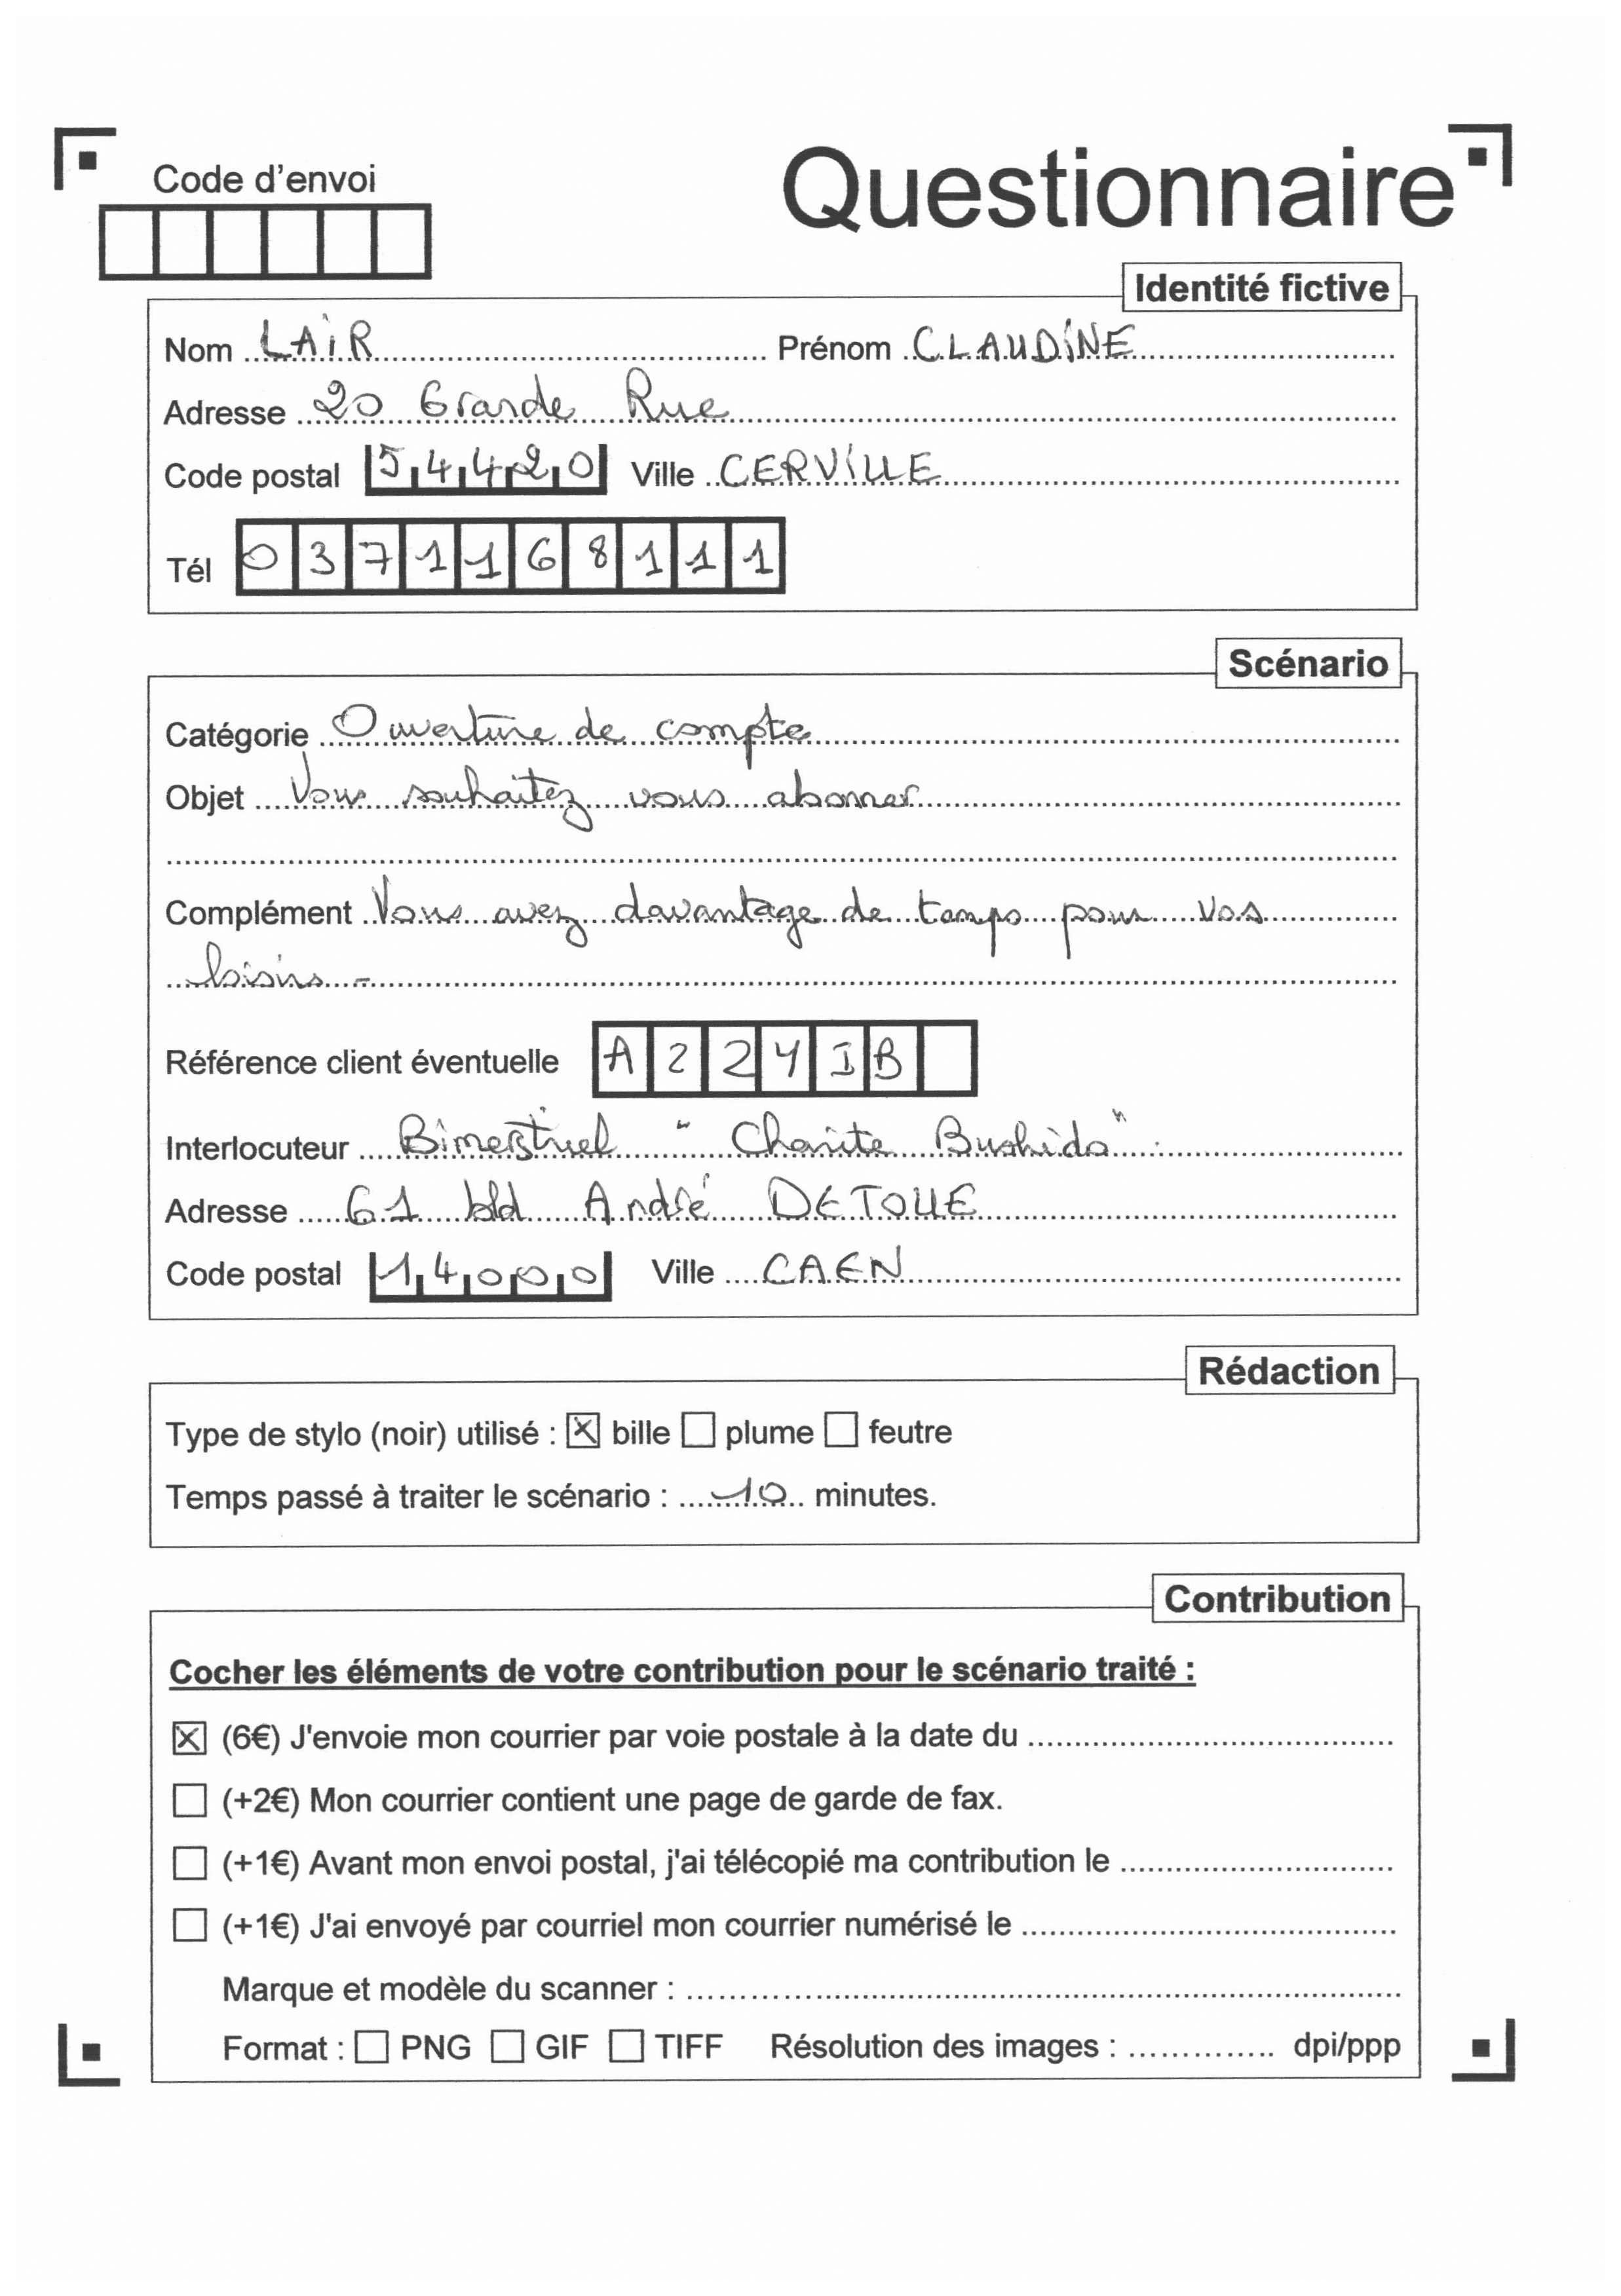 Code d'envoi
Questionnaire
Identité fictive
Nom LAIR Prénom CLAUDINE
Adresse 20 Grande Rue
Code postal 54420 Ville CERVILLE
Tél 0371168111
Scénario
Catégorie Ouverture de compte
Objet Vous souhaitez vous abonner
Complément Vous avez davantage de temps pour vos
loisirs -
Référence client éventuelle A224IB
Interlocuteur Bimestriel " Charite Bushido".
Adresse 61 bld André DETOLLE
Code postal 14000 Ville CAEN
Rédaction
Type de stylo (noir) utilisé : ☒ bille ☐ plume ☐ feutre
Temps passé à traiter le scénario : 10 minutes.
Contribution
Cocher les éléments de votre contribution pour le scénario traité :
☒ (6€) J'envoie mon courrier par voie postale à la date du
☐ (+2€) Mon courrier contient une page de garde de fax.
☐ (+1€) Avant mon envoi postal, j'ai télécopié ma contribution le
☐ (+1€) J'ai envoyé par courriel mon courrier numérisé le
Marque et modèle du scanner :
Format : ☐ PNG ☐ GIF ☐ TIFF Résolution des images : dpi/ppp